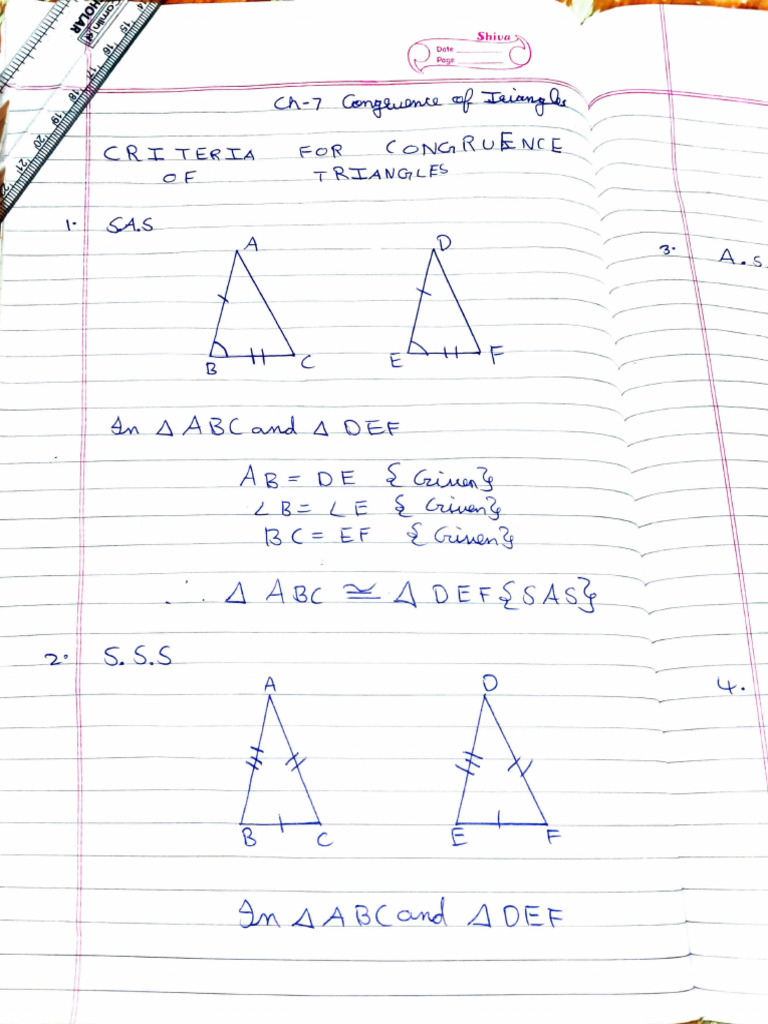 Camlin
SCHOLAR
14
15
16
17
18
19
20
21
Shiva
Date
Page
Ch-7 Congruence of Triangles
CRITERIA FOR CONGRUENCE
OF TRIANGLES
1. S.A.S
A
D
B
C
E
F
In △ ABC and △ DEF
AB = DE { Given}
∠B = ∠E { Given}
BC = EF { Given}
∴ △ ABC ≅ △ DEF {SAS}
2. S.S.S
A
D
B
C
E
F
In △ ABC and △ DEF
3. A.S.
4.